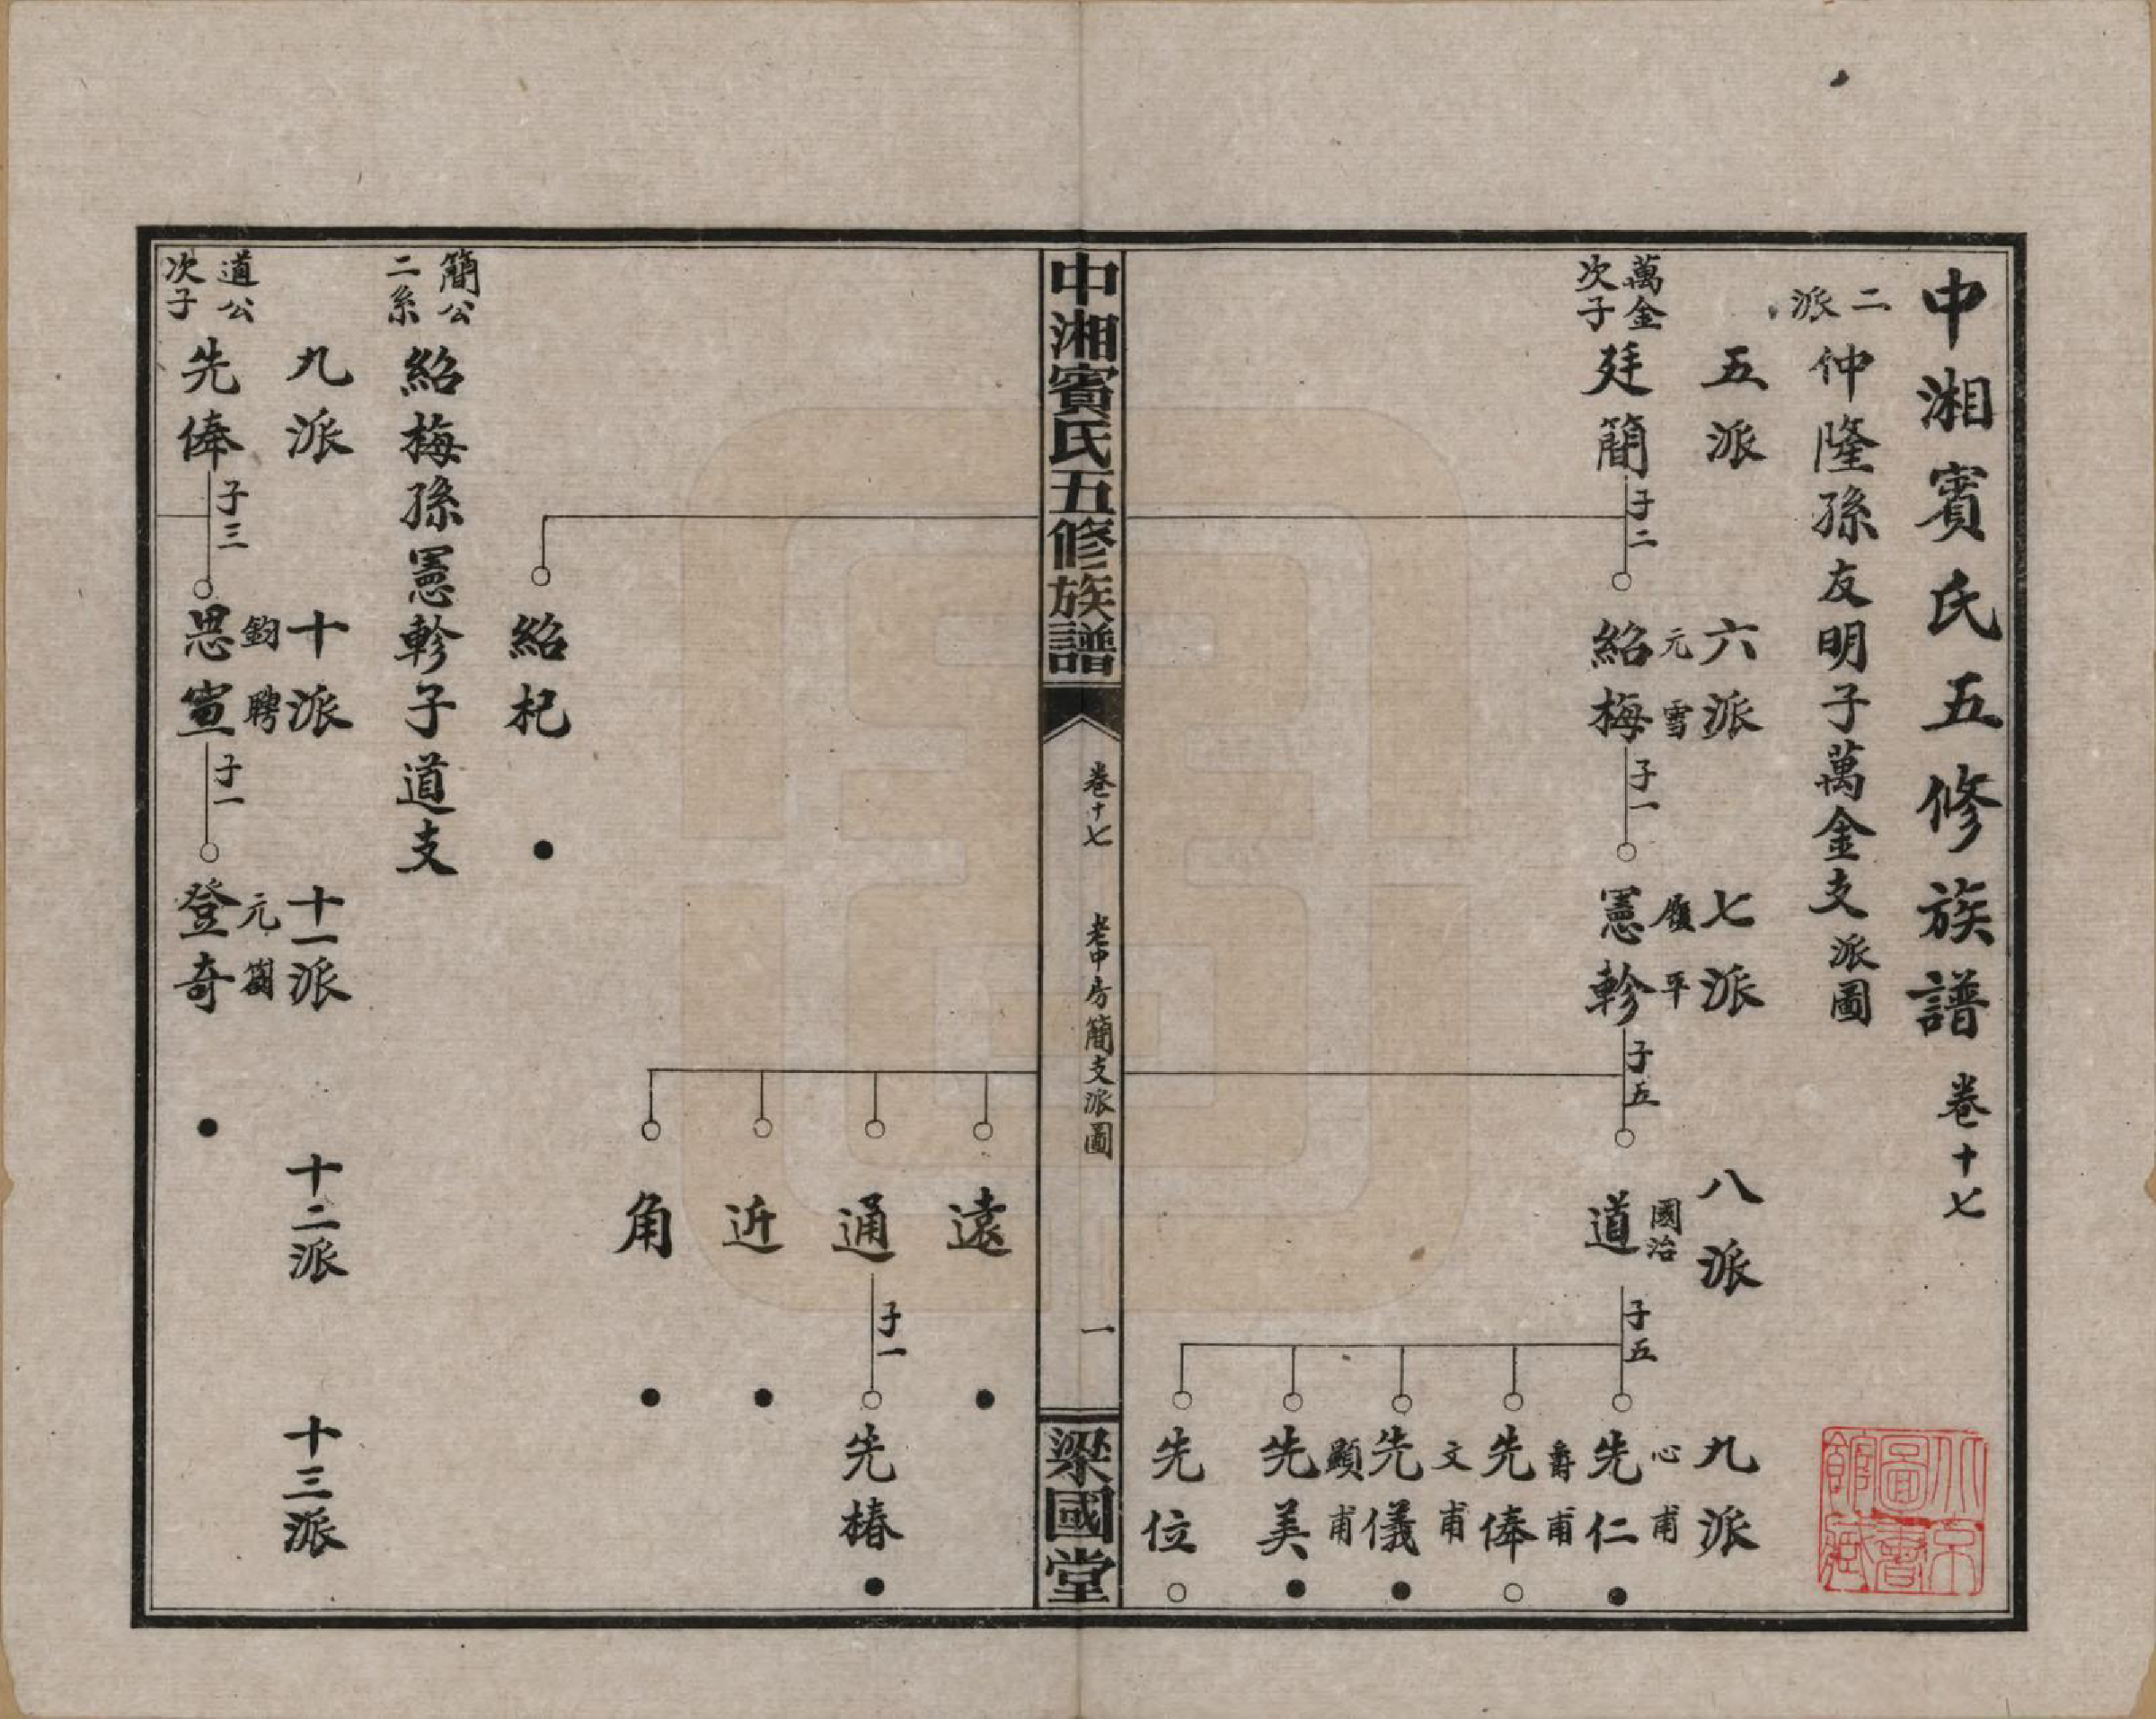 中湘賓氏五修族譜 卷十七
二派 仲隆孫友明子萬金支派圖
五派 六派 七派 八派 九派
元雪 履平 國治 心甫
萬金次子 廷簡 子二 紹梅 子一 憲軫 子五 道 子五 先仁
爵甫
先俸
文甫
先儀
顯甫
先美
先位
中湘賓氏五修族譜 卷十七 老中房簡支派圖 一 梁國堂
遠
通 子一 先椿
近
角
紹杞
簡公二系 紹梅孫憲軫子道支
九派 十派 十一派 十二派 十三派
鈞聘 元
道公次子 先俸 子三 思宣 子一 登奇
北京圖書館藏